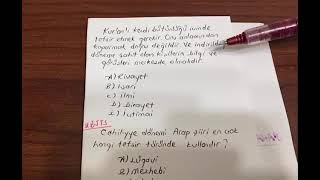 Kur'an'ı kendi bütünlüğü içinde
tefsir etmek gerekir. Onu anlamından
koparmak doğru değildir. Ve indirildiği
döneme şahit olan kimselerin bilgi ve
görüşleri merkezde olmalıdır.
A) Rivayet
B) İşari
C) ilmi
D) Dirayet
E) İctimai
Cahiliyye dönemi Arap şiiri en çok
hangi tefsir türünde kullanılır?
A) Lügavi
B) Mezhebi